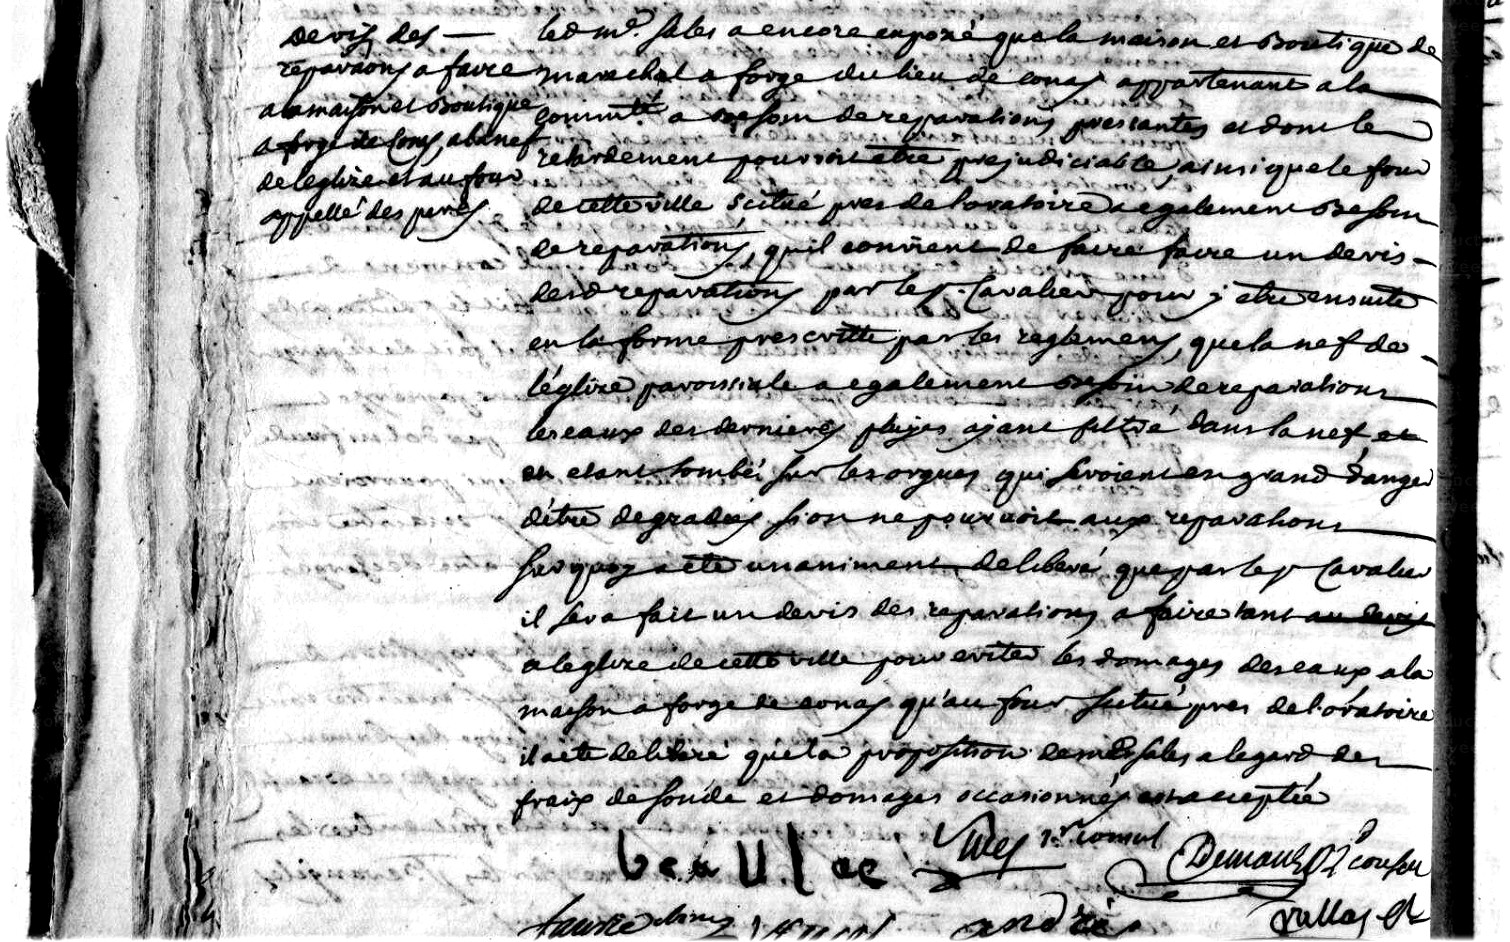 devis des
reparaons a faire
a la maison et Boutique
a forge de Conas, a la nef
de leglize et au four
appellé des peres
led mr. sales a encore exposé que la maison et Boutique de
marechal a forge du lieu de conas appartenant a la
commté a besoin de reparations pressantes et dont le
retardement pourroit etre prejudiciable, ainsi que le four
de cette ville scitué pres de loratoire a egalement Besoin
de reparations, quil convient de faire faire un devis
desd reparations par le sr. Cavalier pour y etre ensuite
en la forme prescritte par les reglemens, que la nef de
léglize paroissiale a egalement Besoin de reparations
les eaux des dernieres pluyes ajant filtré dans la nef et
en etant tombé sur les orgues qui seroient en grand danger
détre degradées si on ne pourvoit aux reparations
sur quoy a eté unaniment deliberé que par le sr Cavalier
il sera fait un devis des reparations a faire tant au devis
a leglize de cette ville pour eviter les domages des eaux a la
maison a forge de conas qu'au four scitué pres de l'oratoire
il a eté deliberé que la proposition de mr sales a legard des
fraix de sonde et domages occasionnés est acceptée
beaulac
1er consul
2e consul
andré